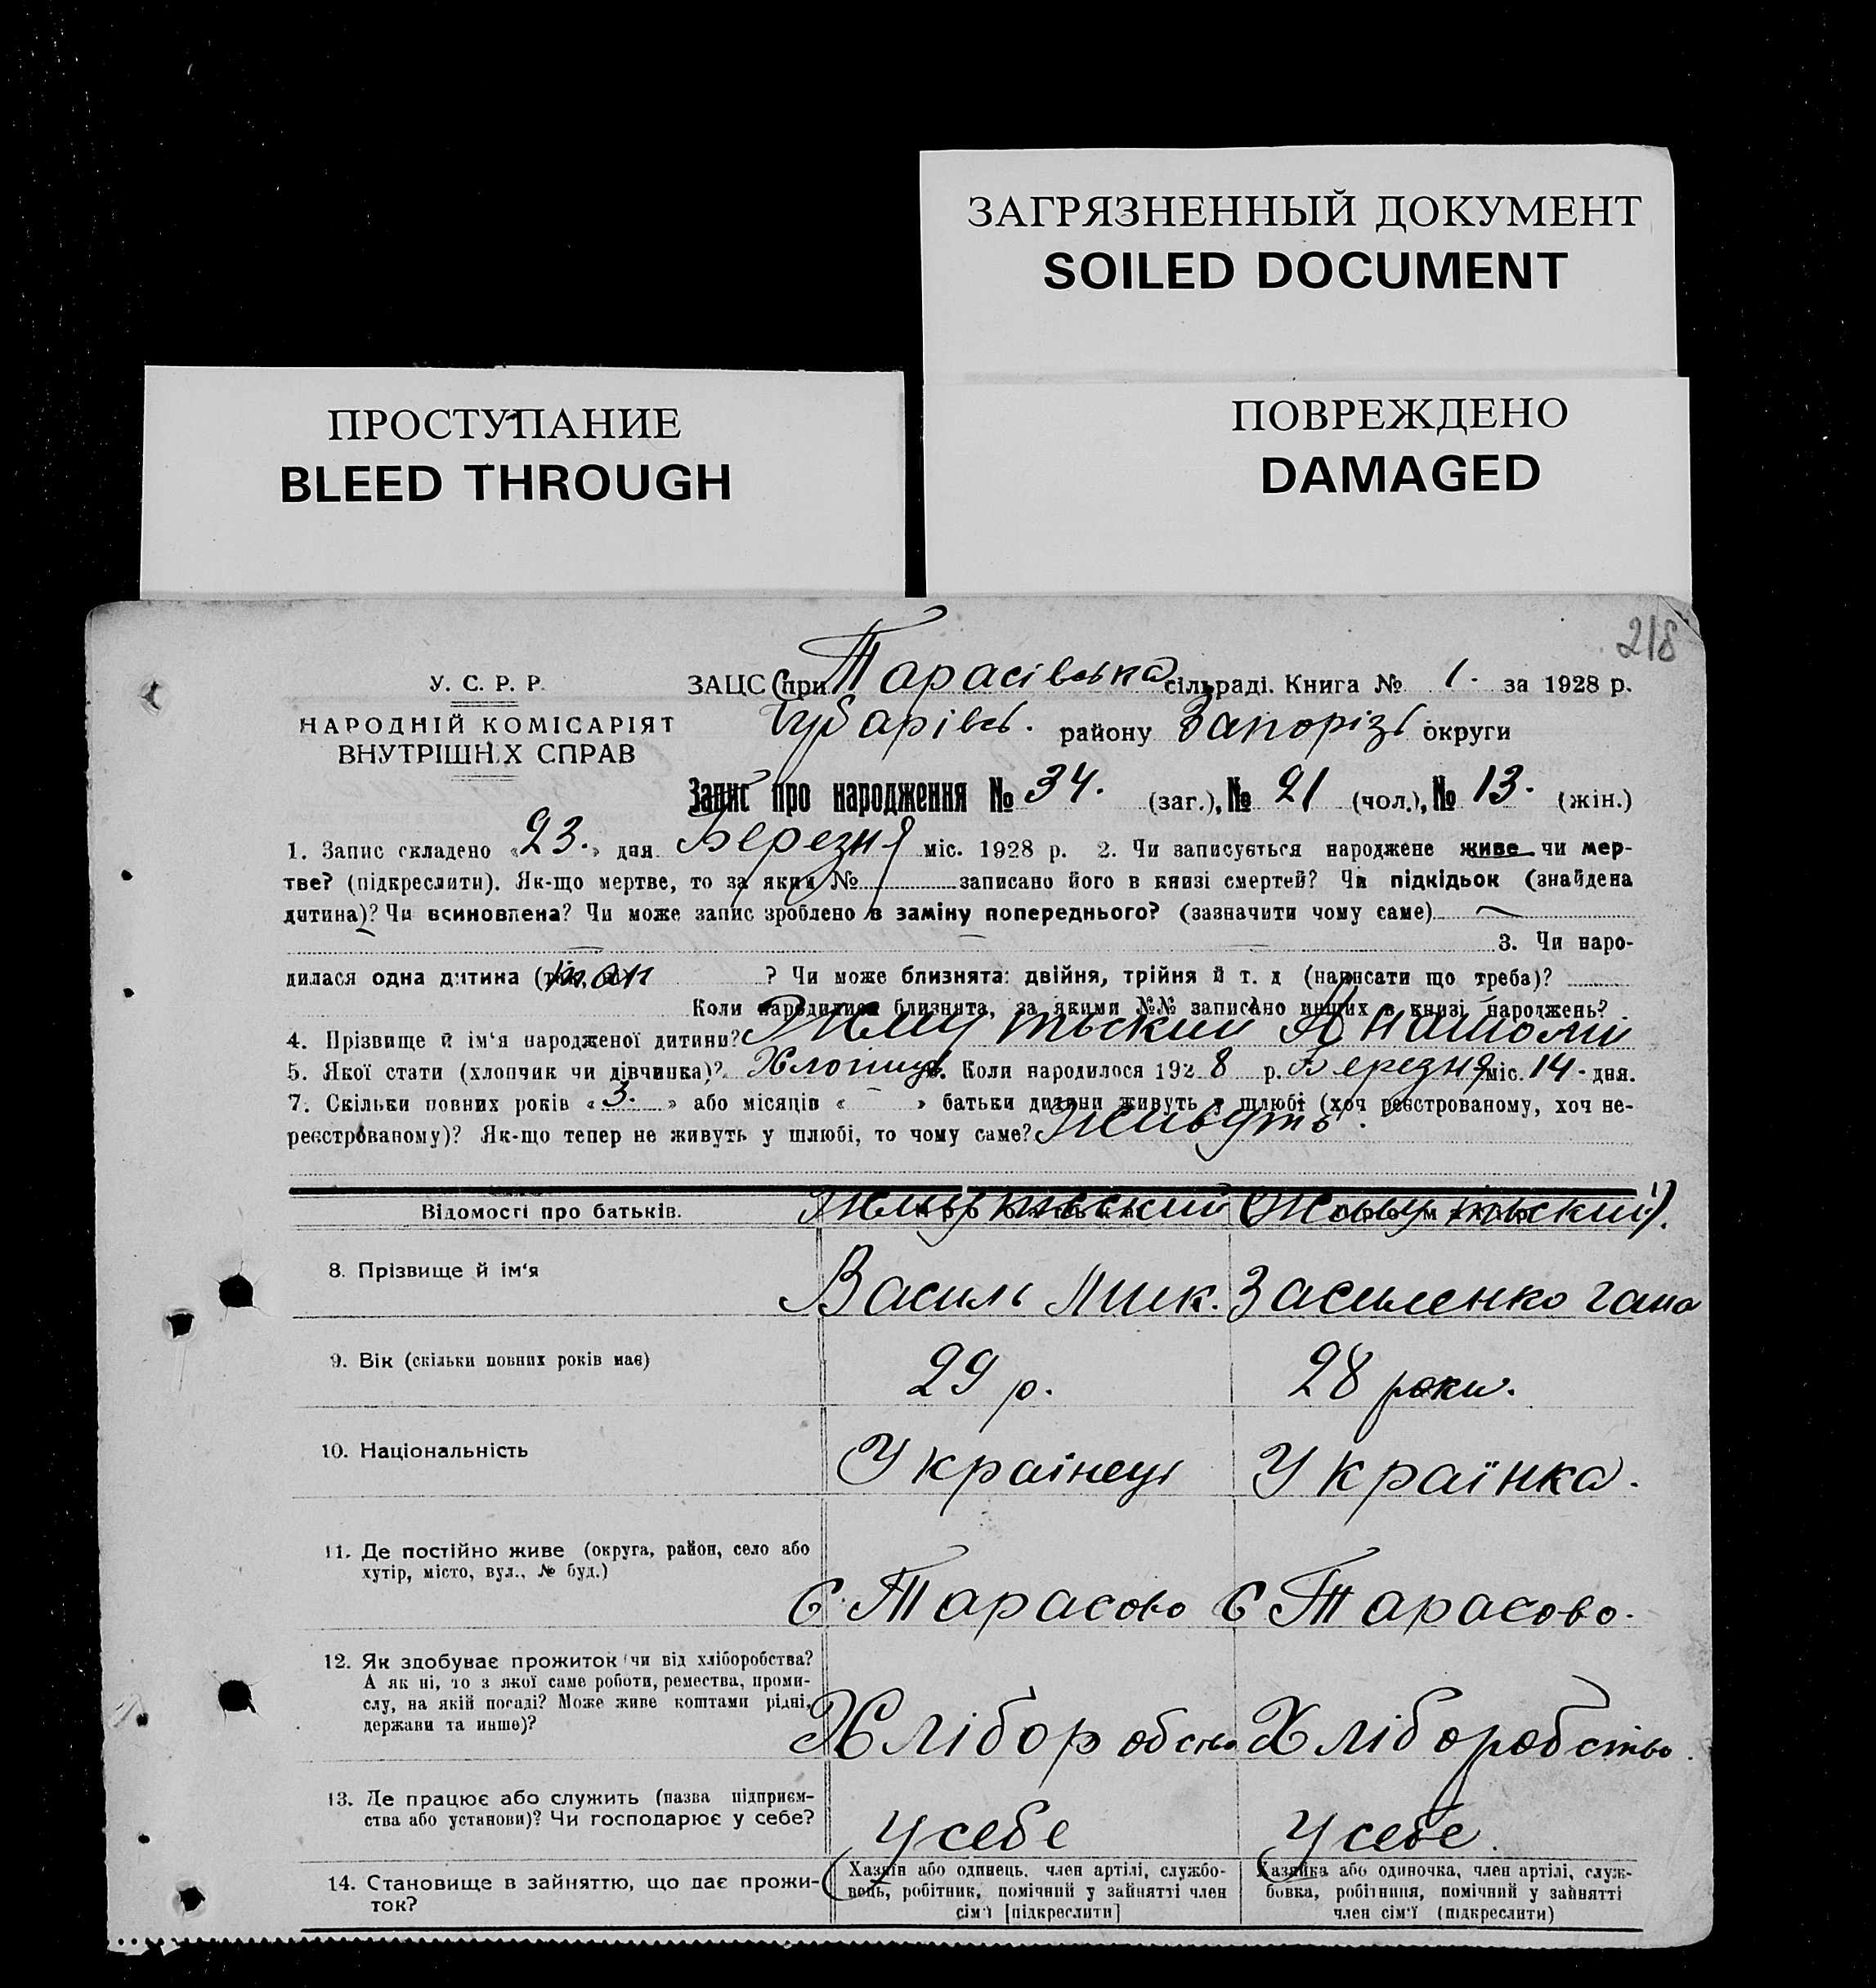 ЗАГРЯЗНЕННЫЙ ДОКУМЕНТ
SOILED DOCUMENT
ПРОСТУПАНИЕ
BLEED THROUGH
ПОВРЕЖДЕНО
DAMAGED
218
У. С. Р. Р.
НАРОДНІЙ КОМІСАРІЯТ
ВНУТРІШН.Х СПРАВ
ЗАЦС (при Тарасівська сільраді. Книга № 1. за 1928 р.
району Запорізь округи
Запис про народження № 34. (заг.), № 21 (чол.), № 13. (жін.)
1. Запис складено «23.» дня Березня міс. 1928 р. 2. Чи записується народжене живе чи мер-
тве? (підкреслити). Як-що мертве, то за яким № записано його в книзі смертей? Чи підкідьок (знайдена
дитина)? Чи всиновлена? Чи може запис зроблено в заміну попереднього? (зазначити чому саме)
3. Чи наро-
дилася одна дитина (так, ні) ? Чи може близнята: двійня, трійня й т. д (написати що треба)?
Коли народилися близнята, за якими №№ записано инших в книзі народжень?
4. Прізвище й ім'я народженої дитини?
5. Якої стати (хлопчик чи дівчинка)? Хлопиць. Коли народилося 1928 р. Березня міс. 14 - дня.
7. Скільки повних років «3.» або місяців « » батьки дитини живуть у шлюбі (хоч реєстрованому, хоч не-
реєстрованому)? Як-що тепер не живуть у шлюбі, то чому саме? Живуть.
Відомості про батьків.
8. Прізвище й ім'я Василь Мик. Засиленко Гана
9. Вік (скільки повних років має) 29 р. 28 роки.
10. Національність Українець Українка.
11. Де постійно живе (округа, район, село або
хутір, місто, вул., № буд.)
С. Тарасово С Тарасово.
12. Як здобуває прожиток (чи від хліборобства?
А як ні, то з якої саме роботи, ремества, проми-
слу, на якій посаді? Може живе коштами рідні,
держави та инше)?
Хліборобство Хліборобство.
13. Де працює або служить (назва підприєм-
ства або установи)? Чи господарює у себе?
У себе У себе.
14. Становище в зайняттю, що дає прожи-
ток?
Хазяїн або одинець, член артілі, службо-
вець, робітник, помічний у зайнятті член
сім'ї [підкреслити]
Хазяйка або одиночка, член артілі, служ-
бовка, робітниця, помічний у зайнятті
член сім'ї (підкреслити)